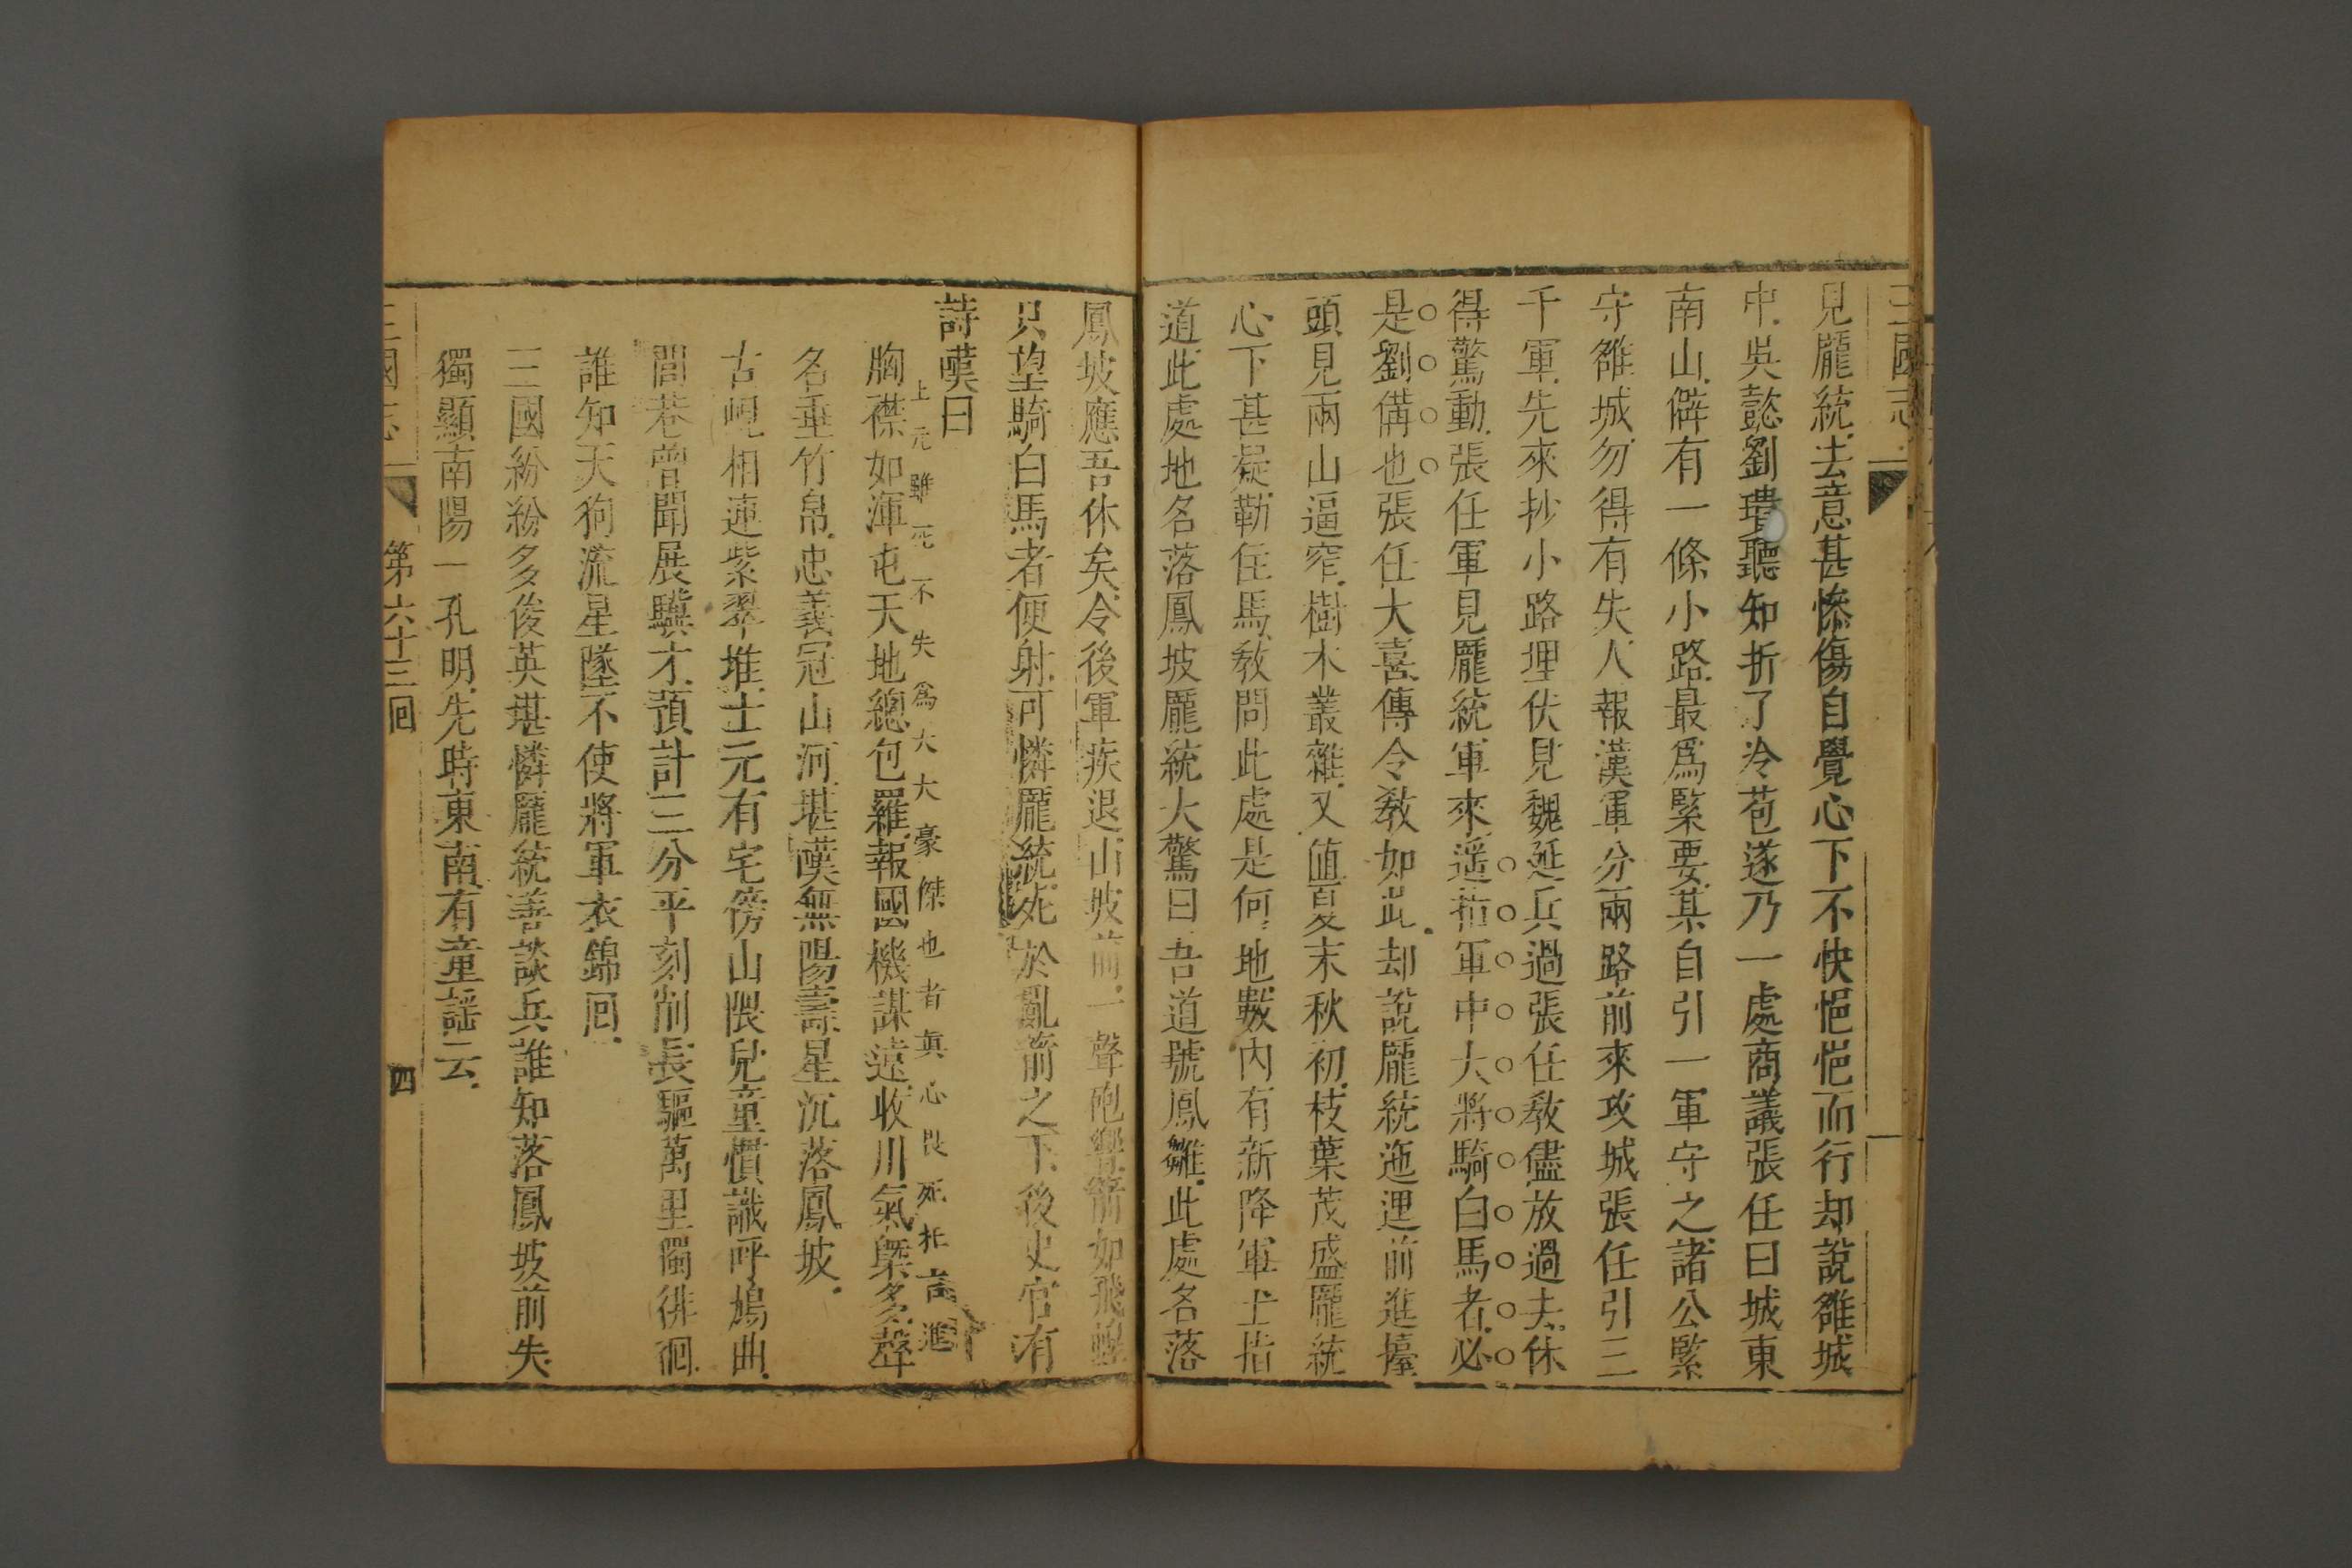 三國志
見龐統去意甚慘傷自覺心下不快悒悒而行却說雒城
中吳懿劉璝聽知折了冷苞遂乃一處商議張任曰城東
南山僻有一條小路最爲緊要某自引一軍守之諸公緊
守雒城勿得有失人報漢軍分兩路前來攻城張任引三
千軍先來抄小路埋伏見魏延兵過張任教儘放過去休
得驚動張任軍見龐統軍來遥指軍中大將騎白馬者必
是劉備也張任大喜傳令教如此却說龐統迤逦前進擡
頭見兩山逼窄樹木叢雜又値夏末秋初枝葉茂盛龐統
心下甚疑勒住馬教問此處是何地數內有新降軍士指
道此處地名落鳳坡龐統大驚曰吾道號鳳雛此處名落
鳳坡應吾休矣令後軍疾退山坡前一聲砲響箭如飛蝗
只望騎白馬者便射可憐龐統死於亂箭之下後史官有
詩嘆曰
上元雖死不失爲大大豪傑也者眞心畏死
胸襟如渾屯天地總包羅報國機謀遠收川氣槩多聲
名垂竹帛忠義冠山河堪嘆無陽壽星沉落鳳坡
古峴相連紫翠堆士元有宅傍山隈兒童慣識呼鳩曲
閭巷曾聞展驥才預計三分平刻削長驅萬里獨徘徊
誰知天狗流星墜不使將軍衣錦囘
三國紛紛多俊英堪憐龐統善談兵誰知落鳳坡前失
獨顯南陽一孔明先時東南有童謡云
三國志
第六十三囘
四